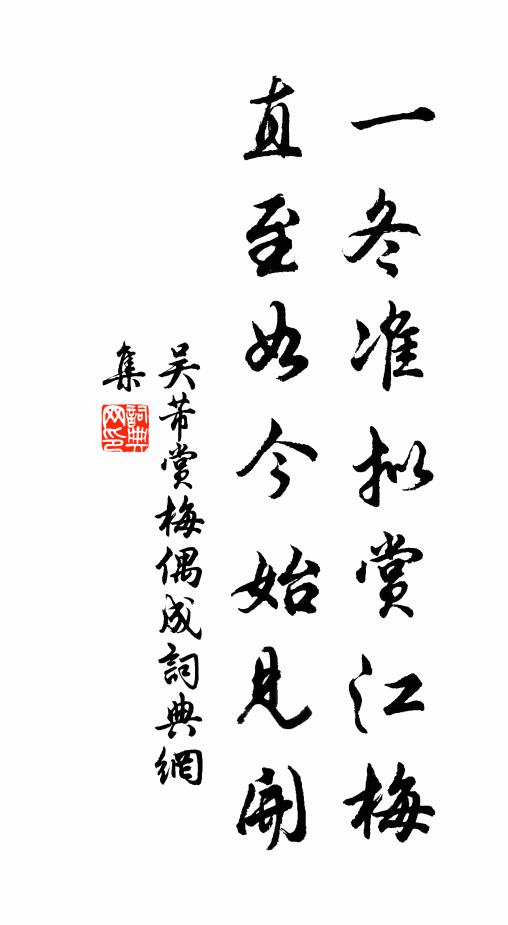 一冬准拟赏江梅
直至如今始见开
吴芾赏梅偶成詞典網
集
詞典网印